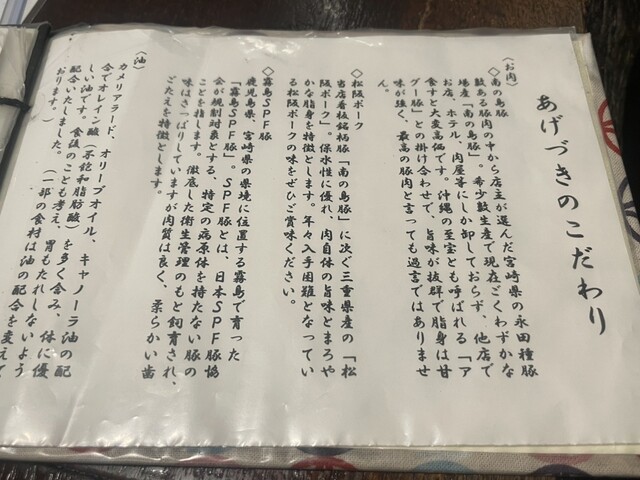 あげづきのこだわり
〈お肉〉
◇南の島豚
数ある豚肉の中から店主が選んだ宮崎県の永田種豚
場産「南の島豚」。希少数生産で現在ごくわずかな
お店、ホテル、肉屋客にしか卸しておらず、他店で
食すと大変高価です。沖縄の至宝とも呼ばれる「ア
グー豚」との掛け合わせで、旨味が抜群で脂身は甘
味が強く、最高の豚肉と言っても過言ではありませ
ん。
◇松阪ポーク
当店看板銘柄豚「南の島豚」に次ぐ三重県産の「松
阪ポーク」。保水性に優れ、肉自体の旨味とまろや
かな脂身を特徴とします。年々入手困難となってい
る松阪ポークの味をぜひご賞味ください。
◇霧島SPF豚
鹿児島県、宮崎県の県境に位置する霧島で育った
「霧島SPF豚」。SPF豚とは、日本SPF豚協
会が規制対象とする、特定の病原体を持たない豚の
ことを指します。徹底した衛生管理のもと飼育され、
味はさっぱりしていますが肉質は良く、柔らかい歯
ごたえを特徴とします。
〈油〉
カメリアラード、オリーブオイル、キャノーラ油の配
合でオレイン酸(不飽和脂肪酸)を多く含み、体に優
しい油です。食後のことも考え、胃もたれしないよう
配合いたしました。(一部の食材は油の配合を変えて
おります。)